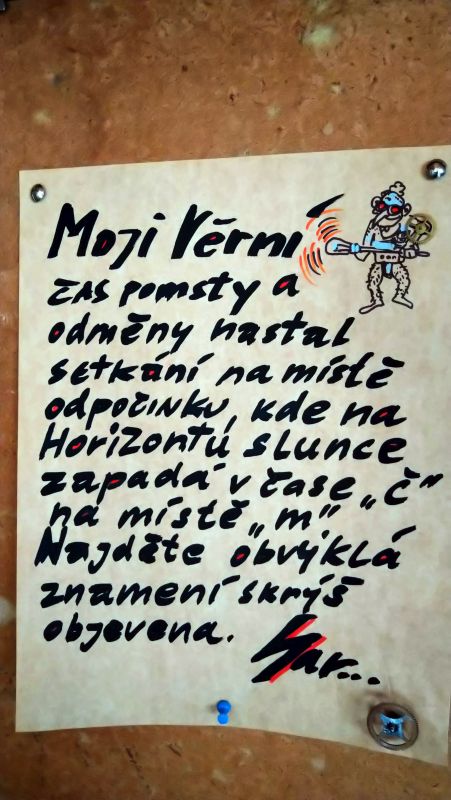 Moji Věrní
čas pomsty a
odměny nastal
setkání na místě
odpočinku, kde na
Horizontu slunce
zapadá v čase „č"
na místě „m"
Najděte obvyklá
znamení skrýš
objevena.